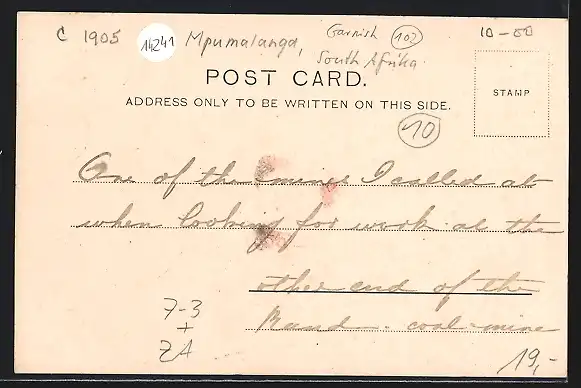 C 1905
14241
Mpumalanga, Garnish 102
South Afrika.
10-00
POST CARD.
STAMP
ADDRESS ONLY TO BE WRITTEN ON THIS SIDE.
10
One of the mines I called at
when looking for work at the
other end of the
Rand. coal-mine
7-3
+
ZA
19,-